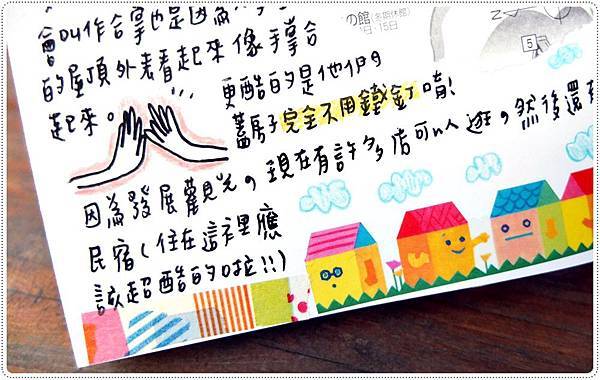 會叫作合掌也是因為
的屋頂外表看起來像手掌合
起來。
更酷的是他們
蓋房子完全不用鐵釘唷!
因為發展觀光。現在有許多店可以逛。然後還
民宿(住在這裡應
該超酷的啦!!)
の館(冬期休館)
日 15日
5